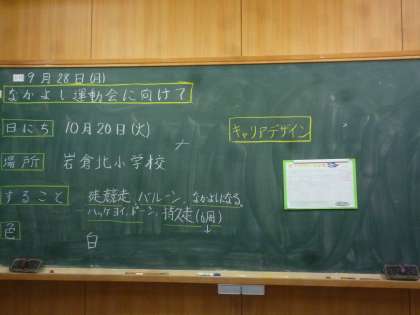 9月28日(月)
なかよし運動会に向けて
日にち 10月20日(火)
キャリアデザイン
場所 岩倉北小学校
すること 徒競走、バルーン、なかよしになる、
ハッケヨイ、ドーン、持久走(6周)
色 白